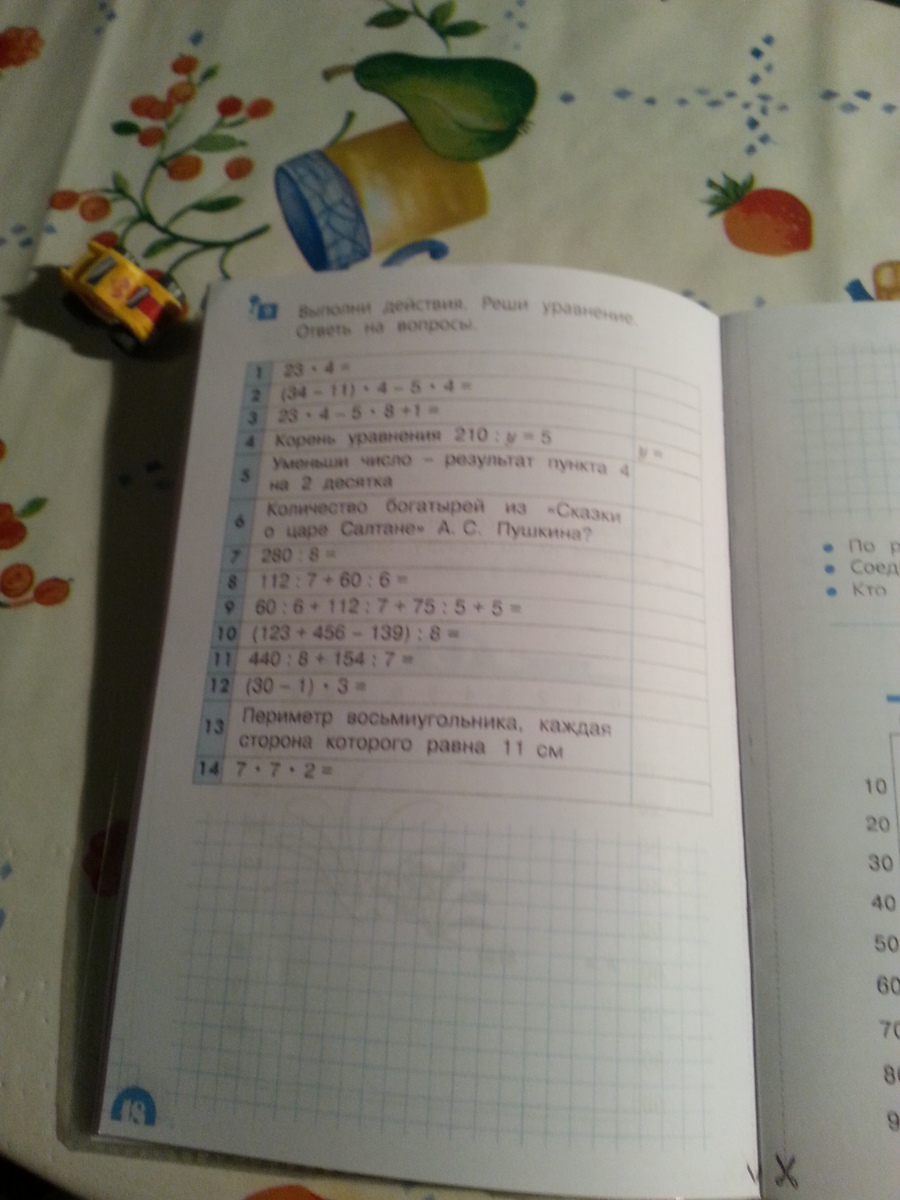 9 Выполни действия. Реши уравнение.
Ответь на вопросы.
1 23 · 4 =
2 (34 – 11) · 4 – 5 · 4 =
3 23 · 4 – 5 · 8 +1 =
4 Корень уравнения 210 : y = 5 y =
5 Уменьши число – результат пункта 4
на 2 десятка
6 Количество богатырей из «Сказки
о царе Салтане» А. С. Пушкина?
7 280 : 8 =
8 112 : 7 + 60 : 6 =
9 60 : 6 + 112 : 7 + 75 : 5 + 5 =
10 (123 + 456 – 139) : 8 =
11 440 : 8 + 154 : 7 =
12 (30 – 1) · 3 =
13 Периметр восьмиугольника, каждая
сторона которого равна 11 см
14 7 · 7 · 2 =
48
• По р
• Соед
• Кто
10
20
30
40
50
60
70
80
9